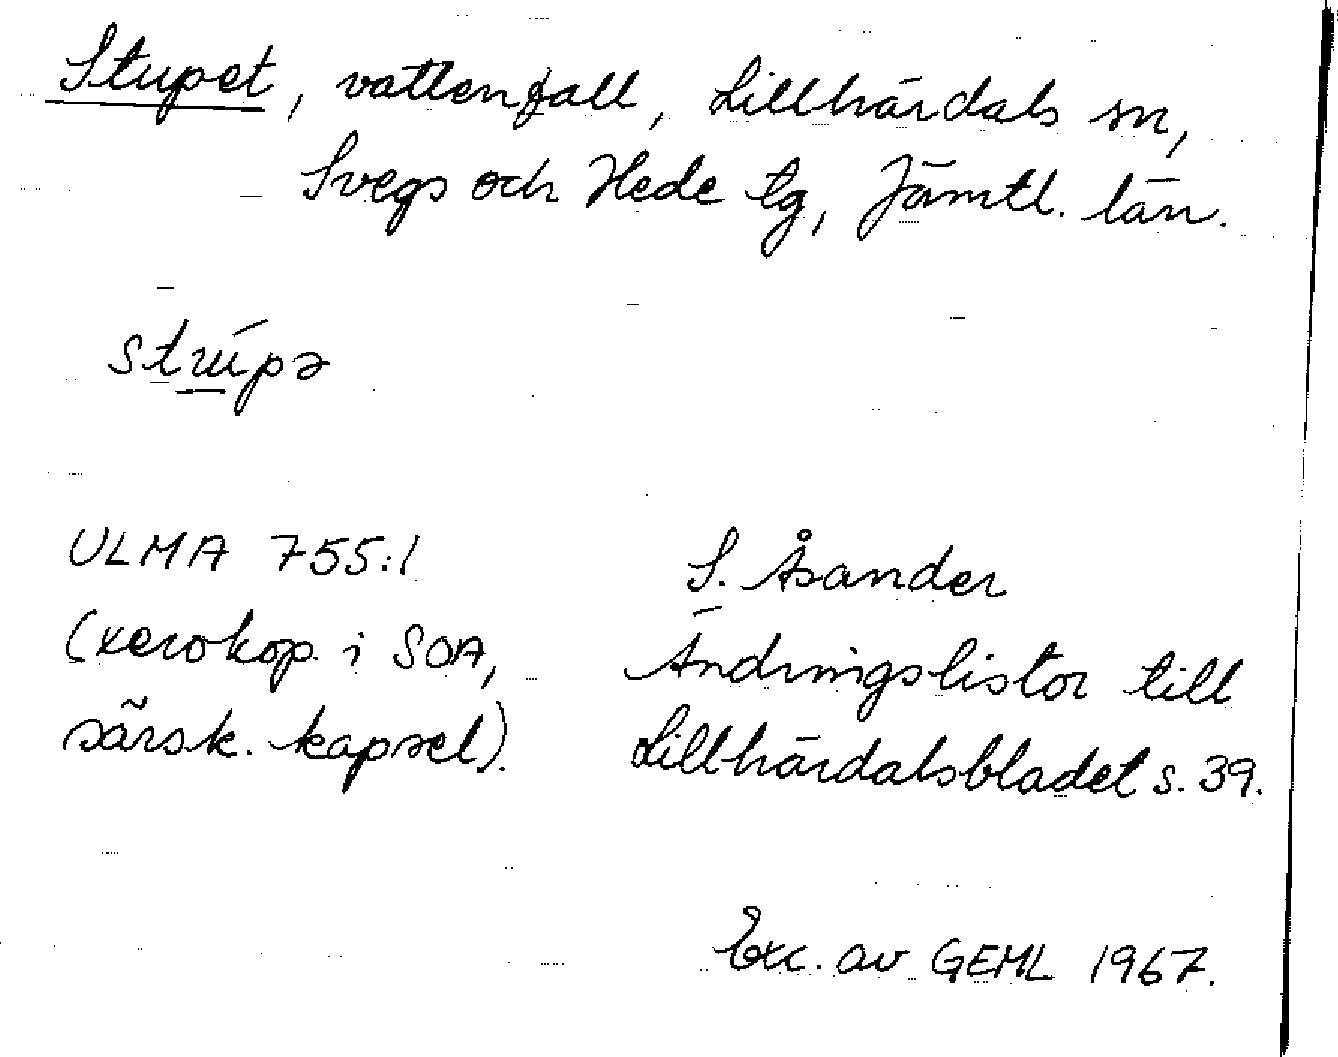 Stupet, vattenfall, Lillhärdals sn,
Svegs och Hede tg, Jämtl. län.
ULMA 755:1
(xerokop. i SOA,
särsk. kapsel).
S. Åsander
Ändringslistor till
Lillhärdalsbladet s. 39.
Exc. av GEML 1967.